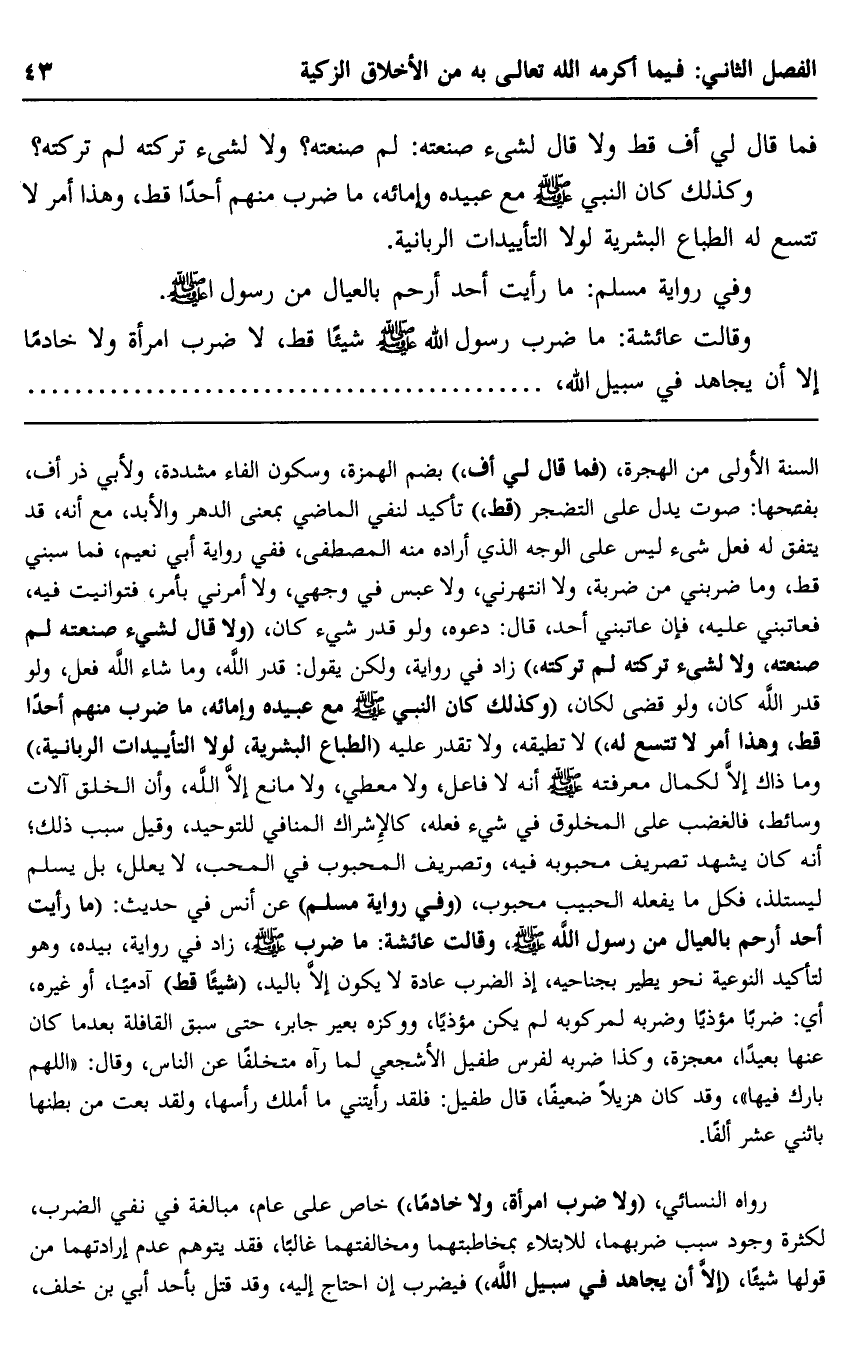 الفصل الثاني: فيما أكرمه الله تعالى به من الأخلاق الزكية ٤٣
فما قال لي أف قط ولا قال لشيء صنعته: لم صنعته؟ ولا لشيء تركته لم تركته؟
وكذلك كان النبي ﷺ مع عبيده وإمائه، ما ضرب منهم أحدًا قط، وهذا أمر لا
تتسع له الطباع البشرية لولا التأييدات الربانية.
وفي رواية مسلم: ما رأيت أحد أرحم بالعيال من رسول اﷺ.
وقالت عائشة: ما ضرب رسول الله ﷺ شيئًا قط، لا ضرب امرأة ولا خادمًا
إلا أن يجاهد في سبيل الله، ............................................
السنة الأولى من الهجرة، (فما قال لي أف،) بضم الهمزة، وسكون الفاء مشددة، ولأبي ذر أف،
بفتحها: صوت يدل على التضجر (قط،) تأكيد لنفي الماضي بمعنى الدهر والأبد، مع أنه، قد
يتفق له فعل شيء ليس على الوجه الذي أراده منه المصطفى، ففي رواية أبي نعيم، فما سبني
قط، وما ضربني من ضربة، ولا انتهرني، ولا عبس في وجهي، ولا أمرني بأمر، فتوانيت فيه،
فعاتبني عليه، فإن عاتبني أحد، قال: دعوه، ولو قدر شيء كان، (ولا قال لشيء صنعته لم
صنعته، ولا لشيء تركته لم تركته،) زاد في رواية، ولكن يقول: قدر اللَّه، وما شاء اللَّه فعل، ولو
قدر اللَّه كان، ولو قضى لكان، (وكذلك كان النبي ﷺ مع عبيده وإمائه، ما ضرب منهم أحدًا
قط، وهذا أمر لا تتسع له،) لا تطيقه، ولا تقدر عليه (الطباع البشرية، لولا التأييدات الربانية،)
وما ذاك إلاَّ لكمال معرفته ﷺ أنه لا فاعل، ولا معطي، ولا مانع إلاَّ اللَّه، وأن الخلق آلات
وسائط، فالغضب على المخلوق في شيء فعله، كالإشراك المنافي للتوحيد، وقيل سبب ذلك؛
أنه كان يشهد تصريف محبوبه فيه، وتصريف المحبوب في المحب، لا يعلل، بل يسلم
ليستلذ، فكل ما يفعله الحبيب محبوب، (وفي رواية مسلم) عن أنس في حديث: (ما رأيت
أحد أرحم بالعيال من رسول اللَّه ﷺ، وقالت عائشة: ما ضرب ﷺ، زاد في رواية، بيده، وهو
لتأكيد النوعية نحو يطير بجناحيه، إذ الضرب عادة لا يكون إلاَّ باليد، (شيئًا قط) آدميًا، أو غيره،
أي: ضربًا مؤذيًا وضربه لمركوبه لم يكن مؤذيًا، ووكزه بعير جابر، حتى سبق القافلة بعدما كان
عنها بعيدًا، معجزة، وكذا ضربه لفرس طفيل الأشجعي لما رآه متخلفًا عن الناس، وقال: «اللهم
بارك فيها»، وقد كان هزيلاً ضعيفًا، قال طفيل: فلقد رأيتني ما أملك رأسها، ولقد بعت من بطنها
باثني عشر ألفًا.
رواه النسائي، (ولا ضرب امرأة، ولا خادمًا،) خاص على عام، مبالغة في نفي الضرب،
لكثرة وجود سبب ضربهما، للابتلاء بمخاطبتهما ومخالفتهما غالبًا، فقد يتوهم عدم إرادتهما من
قولها شيئًا، (إلاَّ أن يجاهد في سبيل اللَّه،) فيضرب إن احتاج إليه، وقد قتل بأحد أبي بن خلف،